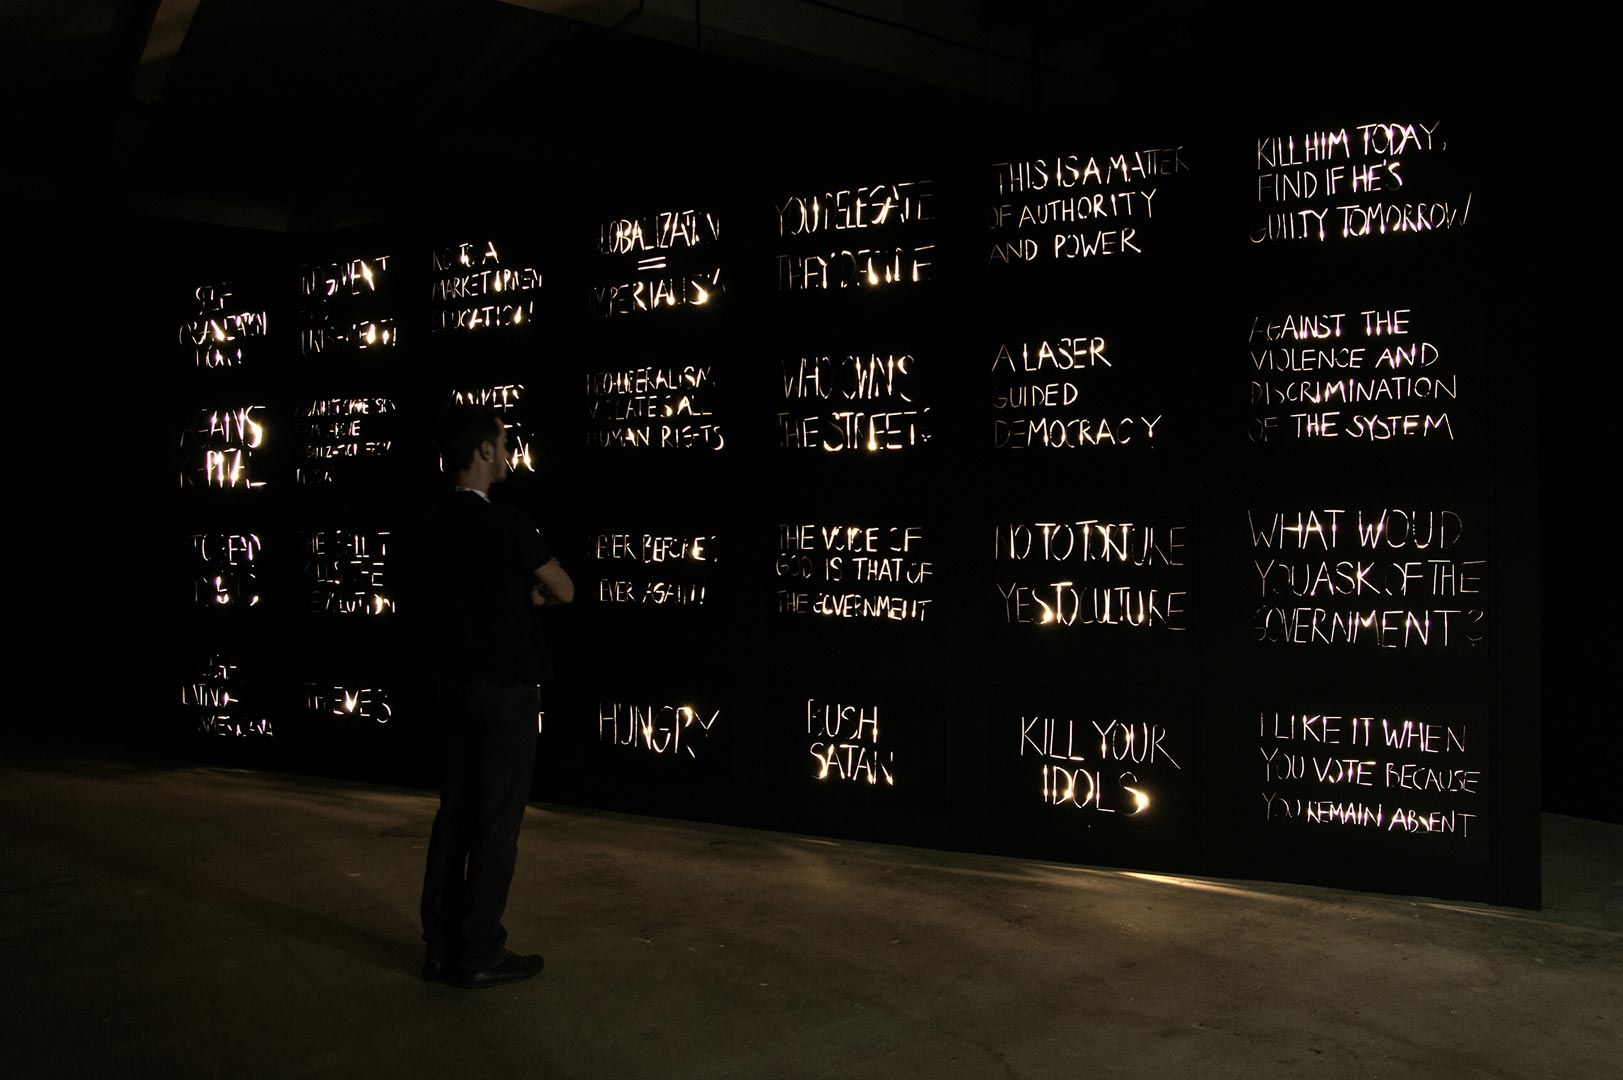 KILL HIM TODAY,
FIND IF HE'S
GUILTY TOMORROW
THIS IS A MATTER
OF AUTHORITY
AND POWER
YOU DELEGATE
THEY DECIDE
GLOBALIZATION
=
IMPERIALISM
NO TO A
MARKET DRIVEN
EDUCATION!
JUDGMENT
SELF
ORGANIZATION
NOW!
AGAINST THE
VIOLENCE AND
DISCRIMINATION
OF THE SYSTEM
A LASER
GUIDED
DEMOCRACY
WHO OWNS
THE STREET?
NEO-LIBERALISM
VIOLATES ALL
HUMAN RIGHTS
YANKEES
AGAINST
KAPITAL
WHAT WOUD
YOU ASK OF THE
GOVERNMENT?
NO TO TORTURE
YES TO CULTURE
THE VOICE OF
GOD IS THAT OF
THE GOVERNMENT
NEVER BEFORE?
NEVER AGAIN!
I LIKE IT WHEN
YOU VOTE BECAUSE
YOU REMAIN ABSENT
KILL YOUR
IDOLS
BUSH
SATAN
HUNGRY
THIEVES
LATINO-
AMERICANA